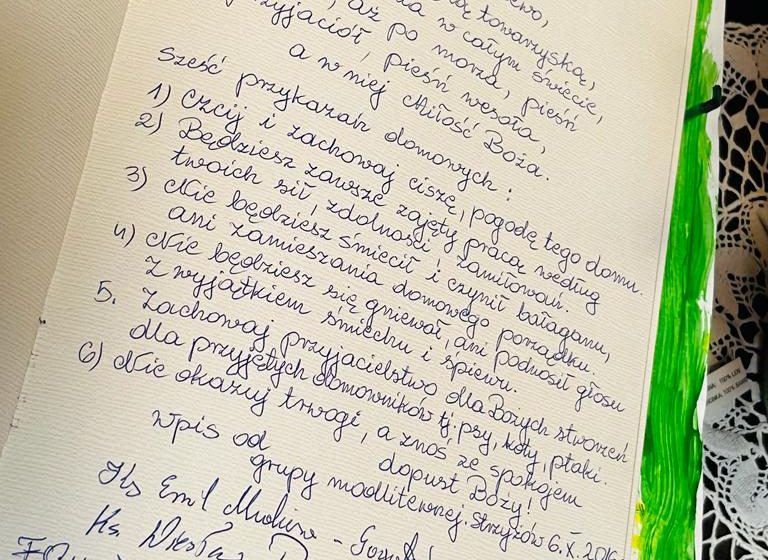 towarzyską,
w całym świecie,
aż po morza, pieśń
przyjaciół, pieśń wesoła,
a w niej Miłość Boża.
Sześć przykazań domowych:
1) Czcij i zachowaj ciszę, pogodę tego domu.
2) Będziesz zawsze zajęty pracą według
twoich sił, zdolności i zamiłowań.
3) Nie będziesz śmiecił i czynił bałaganu,
ani zamieszania domowego porządku.
4) Nie będziesz się gniewał, ani podnosił głosu
z wyjątkiem śmiechu i śpiewu.
5. Zachowaj przyjacielstwo dla Bożych stworzeń
dla przyjętych domowników tj. psy, koty, ptaki.
6) Nie okazuj trwogi, a znoś ze spokojem
dopust Boży!
Wpis od
grupy modlitewnej, Strzyżów 6.X.2016
Ks Emil
Ks.
100% LEN
100%